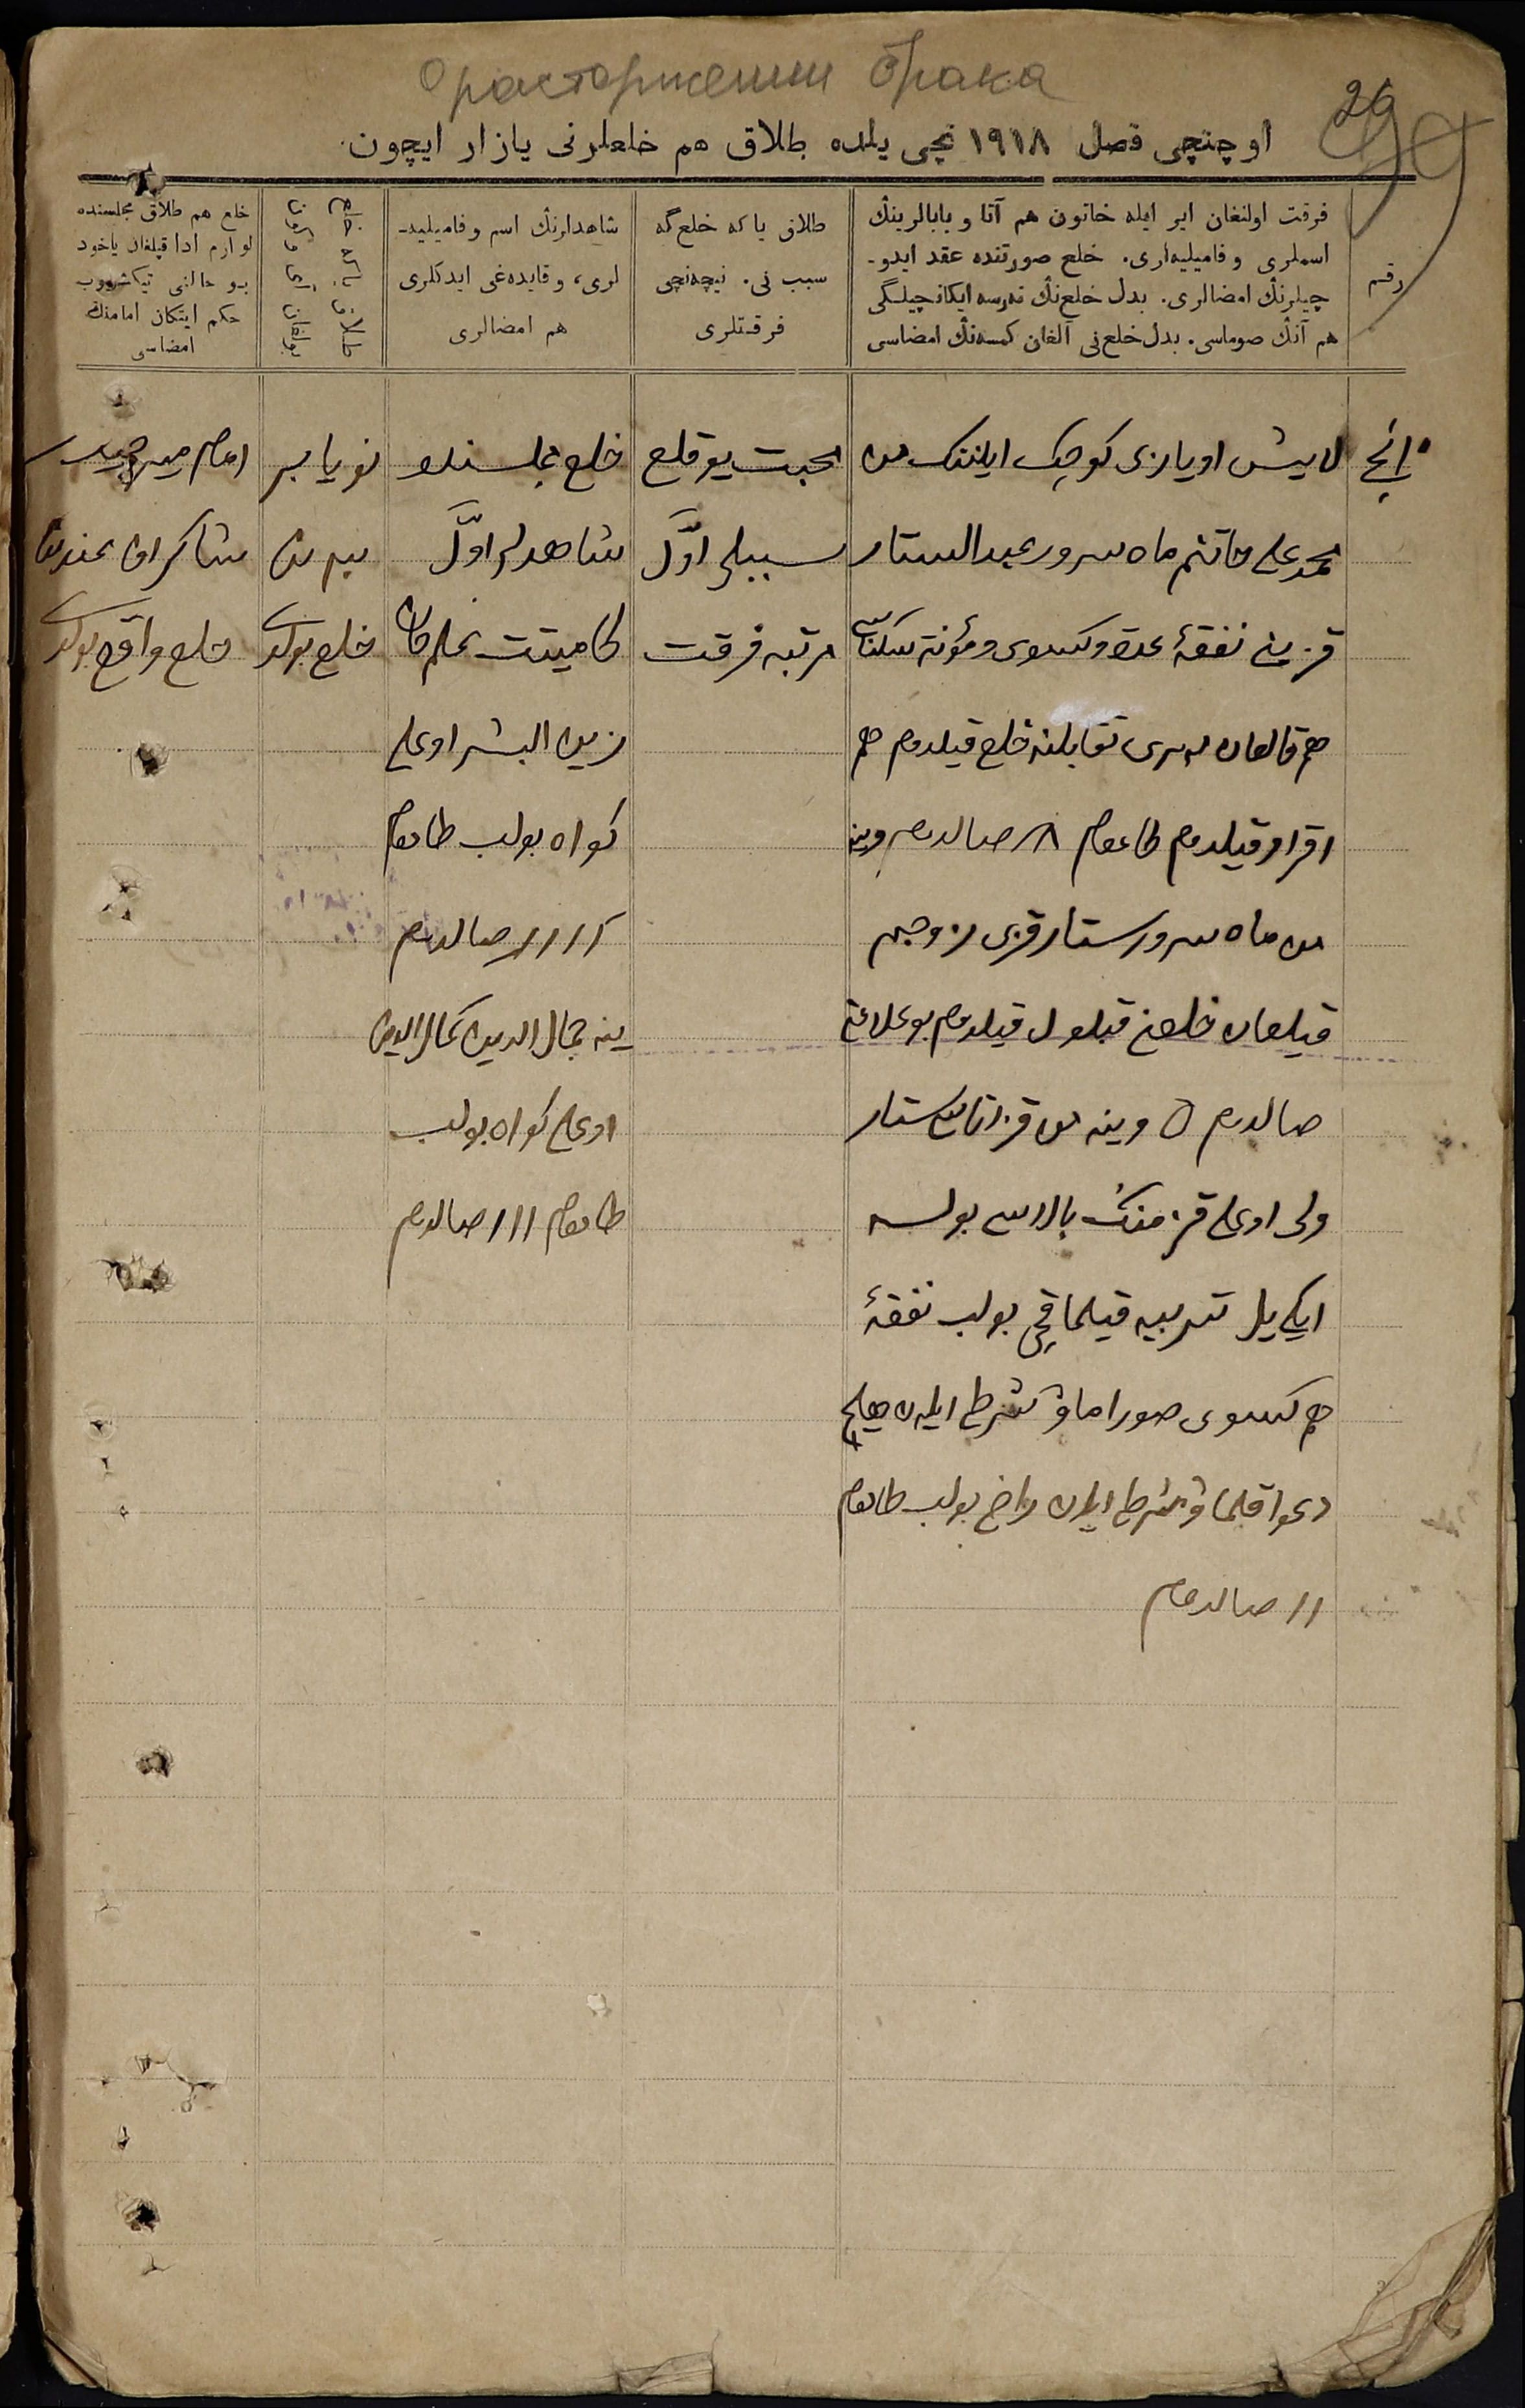 О расторжении брака
29
اوچنچی فصل ١٩١٨ نچی یلده طلاق هم خلعلرنی یازار ایچون.
رقم
فرقت اولنغان ایر ایله خاتون هم آتا و بابالرینڭ
اسملری و فامیلیه‌لری. خلع صورتنده عقد ایدو-
چیلرنڭ امضالری. بدل خلع‌نڭ نه‌رسه ایکانچیلگی
هم آنڭ صوماسی. بدل خلع‌نی آلغان کمسه‌نڭ امضاسی
طلاق یا که خلع گه
سبب نی. نیچه‌نچی
فرقتلری
شاهدلرنڭ اسم و فامیلیه-
لری، و قایده‌غی ایدکلری
هم امضالری
خلع هم طلاق مجلسنده
لوازم ادا قیلغان یاخود
بو حالنی تیکشروب
حکم ایتکان امامنڭ
امضاسی
١نچی
لایش اویازی کوچک ایلیننک من
محمدعلی خاتنم ماه سرور عبدالستار
قزینی نفقهٔ عدة وکسوی ومؤنة سکناسی
هم قالغان مهری تقابلنه خلع قیلدوم هم
اقرار قیلدوم طامغام صالدم وینه
من ماه سرور ستار قزی زوجیم
قیلغان خلعنی قبول قیلدوم بو علامتنی
صالدم وینه من قز آتاسی ستار
ولی اوغلی قزمنک بالاسی بولسه
ایکی یل تربیه قیلماقچی بولب نفقهٔ
هم کسوی صوراماو شرطی ایلەن هیچ
دعوا قلماو شرطی ایلەن راضی بولب طامغام
صالدم
محبت یوقلغ
سببلی اوّل
مرتبه فرقت
خلع مجلسنده
شاهدلر اوّل
کامیتت
زین البشر اوغلی
کواه بولب طامغام
صالدم
ینه جمال الدین کمال الدین
اوغلی کواه بولب
طامغام صالدم
نویابر
بیرنده
خلع بولدی
امام
شاکراف حضورنده
خلع واقع بولدی